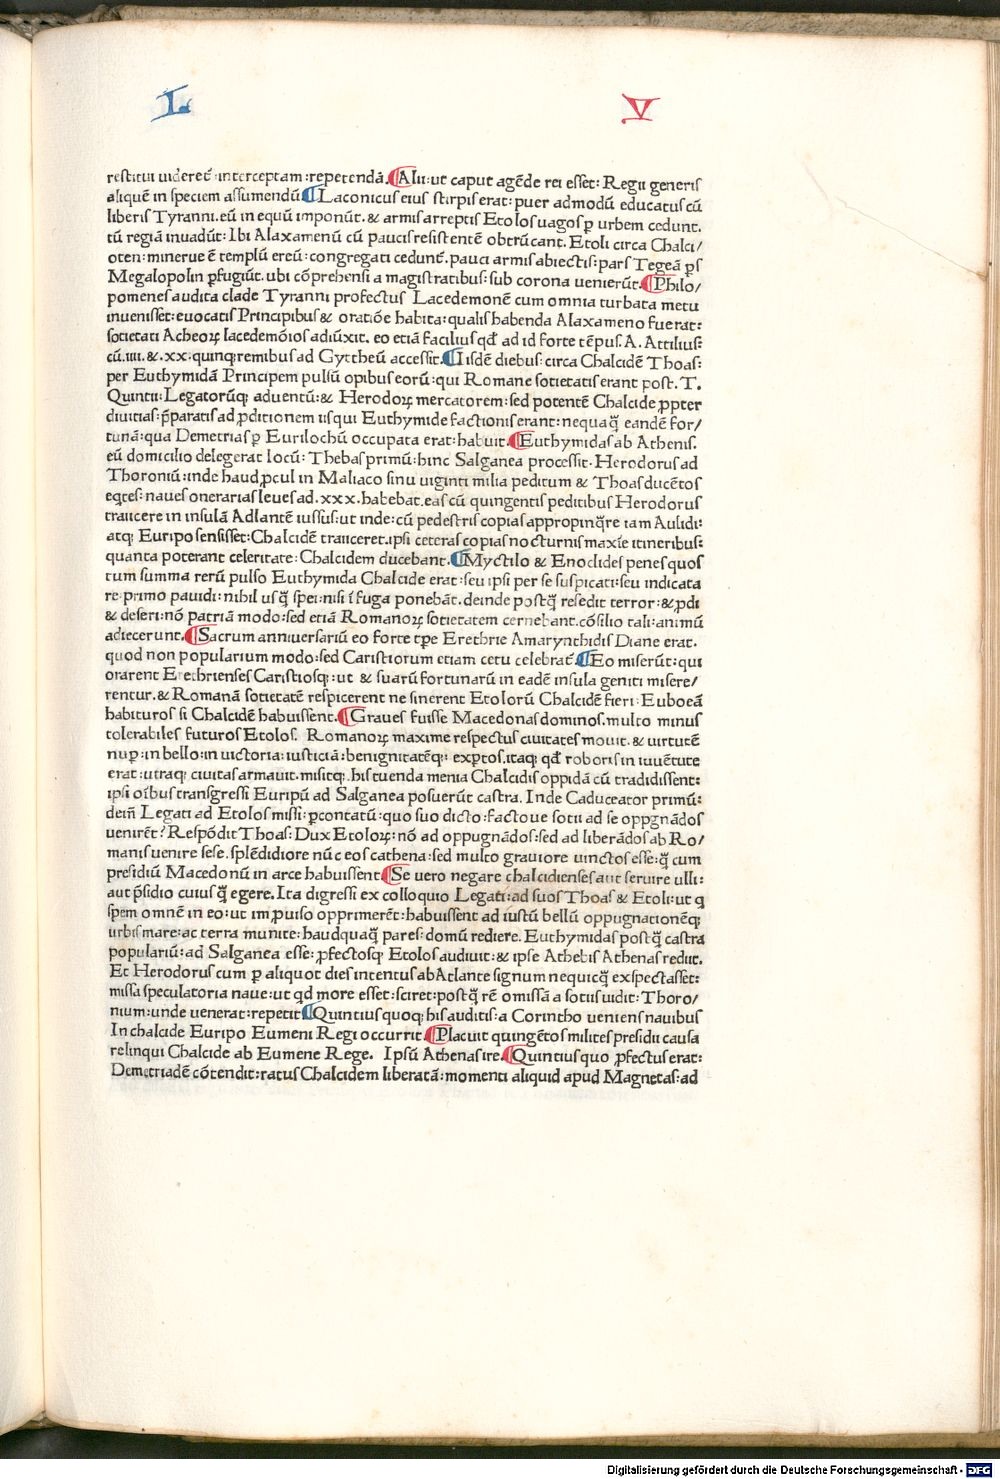 L V
restitui uideret̄ interceptam:repetendā.¶Alii:ut caput agēde rei esset: Regii generis
aliquē in speciem assumendū¶Laconicus eius stirpis erat: puer admodū educatus cū
liberis Tyranni. eū in equū imponūt. & armis arreptis Etolos uagos ꝑ urbem cedunt.
tū regiā inuadūt: Ibi Alaxamenū cū paucis resistentē obtrūcant. Etoli circa Chalci/
oten: minerue ē templū ereū: congregati cedunt̄. pauci armis abiectis: pars Tegeā ꝑs
Megalopolin ꝑfugiūt. ubi cōprehensi a magistratibus: sub corona uenierūt.¶Philo/
pomenes audita clade Tyranni profectus Lacedemonē cum omnia turbata metu
inuenisset: euocatis Principibus & oratiōe habita: qualis habenda Alaxameno fuerat:
societati Acheoꝝ lacedemōios adiūxit. eo etiā facilius qđ ad id forte tēpus. A. Attilius:
cū. iiii. &. xx: quinqꝫ remibus ad Gyttheū accessit.¶Iisdē diebus: circa Chalcidē Thoas:
per Euthymidā Principem pulsū opibus eorū: qui Romane societatis erant post. T.
Quintii: Legatorūqꝫ aduentū: & Herodoꝝ mercatorem: sed potentē Chalcide ꝓpter
diuitias: p̄paratis ad ꝓditionem iis qui Euthymide factionis erant: nequaq̄ eandē for/
tunā: qua Demetrias ꝑ Eurilochū occupata erat: habuit.¶Euthymidas ab Athenis.
eū domicilio delegerat locū: Thebas primū: hinc Salganea processit. Herodorus ad
Thoroniū: inde haud ꝓcul in Maliaco sinu uiginti milia peditum & Thoas ducētos
eqtes: naues onerarias leues ad. xxx. habebat. eas cū quingentis peditibus Herodorus
traiicere in insulā Adlantē iussus: ut inde: cū pedestris copias appropinq̄re iam Aulidi:
atqꝫ Euripo sensisset: Chalcidē traiiceret. ipsi ceteras copias nocturnis maxīe itineribus:
quanta poterant celeritate: Chalcidem ducebant.¶Myctilo & Enoclides penes quos
tum summa rerū pulso Euthymida Chalcide erat: seu ipsi per se suspicati: seu indicata
re: primo pauidi: nihil usq̄ spei: nisi ī fuga ponebāt. deinde postq̄ resedit terror: & ꝓdi
& deseri: nō patriā modo: sed etiā Romanoꝝ societatem cernebant. cōsilio tali: animū
adiecerunt.¶Sacrum anniuersariū eo forte tꝑe Erethrie Amarynthidis Diane erat.
quod non popularium modo: sed Caristiorum etiam cetu celebrat̄.¶Eo miserūt: qui
orarent Erethrienses Caristiosqꝫ: ut & suarū fortunarū in eadē insula geniti misere/
rentur. & Romanā societatē respicerent ne sinerent Etolorū Chalcidē fieri: Euboeā
habituros si Chalcidē habuissent.¶Graues fuisse Macedonas dominos. multo minus
tolerabiles futuros Etolos. Romanoꝝ maxime respectus ciuitates mouit. & uirtutē
nuꝑ: in bello: in uictoria: iusticiā: benignitatēqꝫ: exꝑtos. itaqꝫ qđ roboris in iuuētute
erat: utraqꝫ ciuitas armauit. misitqꝫ. his tuenda menia Chalcidis oppidā cū tradidissent:
ipsi oībus transgressi Euripū ad Salganea posuerūt castra. Inde Caduceator primū:
deiñ Legati ad Etolos missi: ꝑcontatū: quo suo dicto: factoue socii ad se oppgnādos
uenirēt? Respōdit Thoas: Dux Etoloꝝ: nō ad oppugnādos: sed ad liberādos ab Ro/
manis uenire sese. splēdidiore nūc eos cathena: sed multo grauiore uinctos esse: q̄ cum
presidiū Macedonū in arce habuissent¶Se uero negare chalcidienses aut seruire ulli:
aut p̄sidio cuius q̄ egere. Ita digressi ex colloquio Legati: ad suos Thoas & Etoli: ut q
spem omnē in eo: ut imꝓuiso opprimerēt: habuissent ad iustū bellū oppugnationēqꝫ
urbis mare: ac terra munite: haudquaq̄ pares: domū rediere. Euthymidas postq̄ castra
populariū: ad Salganea esse: ꝓfectosqꝫ Etolos audiuit: & ipse Athebis Athenas rediit.
Et Herodorus cum ꝑ aliquot dies intentus ab Atlante signum nequicq̄ exspectasset:
missa speculatoria naue: ut qd more esset: sciret: postq̄ rē omissā a sociis uidit: Thoro/
nium: unde uenerat: repetit¶Quintius quoqꝫ his auditis: a Corintho ueniens nauibus
In chalcide Euripo Eumeni Regi occurrit.¶Placuit quingētos milites presidii causa
relinqui Chalcide ab Eumene Rege. Ipsū Athenas ire.¶Quintius quo ꝓfectus erat:
Demetriadē cōtendit: ratus Chalcidem liberatā: momenti aliquid apud Magnetas: ad
Digitalisierung gefördert durch die Deutsche Forschungsgemeinschaft - DFG